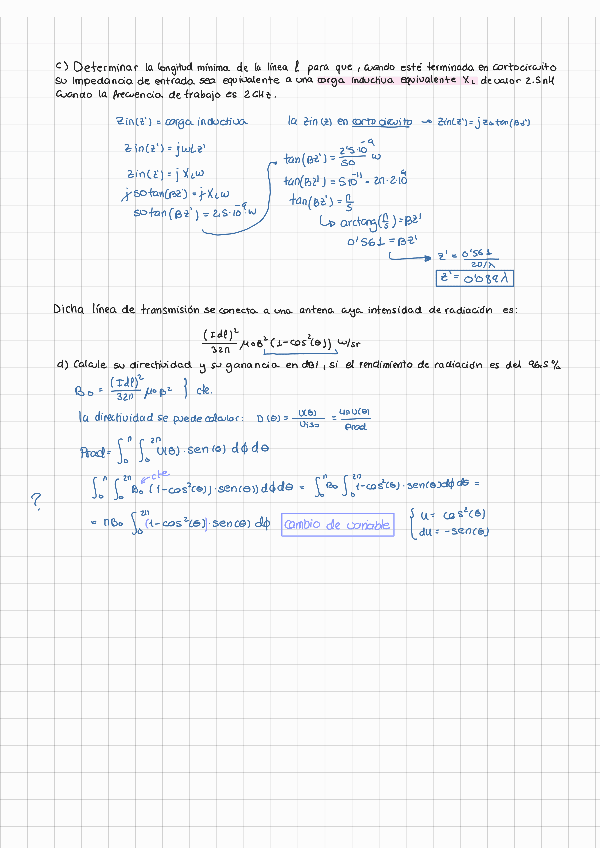 c) Determinar la longitud mínima de la línea ℓ para que, cuando esté terminada en cortocircuito
su impedancia de entrada sea equivalente a una carga inductiva equivalente XL de valor 2.5nH
cuando la frecuencia de trabajo es 2GHz.
Zin(z') = carga inductiva
la Zin(z) en cortocircuito → Zin(z') = jZo tan(βz')
Zin(z') = jωLz'
Zin(z') = j XLω
j50tan(βz') = jXLω
50tan(βz') = 2.5·10⁻⁹ω
tan(βz') = 2'5·10⁻⁹/50 ω
tan(βz') = 5·10⁻¹¹ · 2π·2·10⁹
tan(βz') = π/5
↳ arctang(π/5) = βz'
0'561 = βz'
z' = 0'561/2π/λ
z' = 0'089λ
Dicha línea de transmisión se conecta a una antena cuya intensidad de radiación es:
(Idℓ)²/32π μoβ²(1-cos²(θ)) W/sr
d) Calcule su directividad y su ganancia en dBi, si el rendimiento de radiación es del 96.5%
Bo = (Idℓ)²/32π μoβ² } cte.
la directividad se puede calcular: D(θ) = U(θ)/Uiso = 4πU(θ)/Prad
Prad = ∫₀^π ∫₀^2π U(θ)·sen(θ) dϕdθ
cte
∫₀^π ∫₀^2π Bo (1-cos²(θ))·sen(θ)) dϕdθ = ∫₀^π Bo ∫₀^2π (1-cos²(θ)·sen(θ)dϕdθ =
?
= πBo ∫₀^2π (1-cos²(θ)) sen(θ) dϕ cambio de variable { u = cos²(θ)
du = -sen(θ)